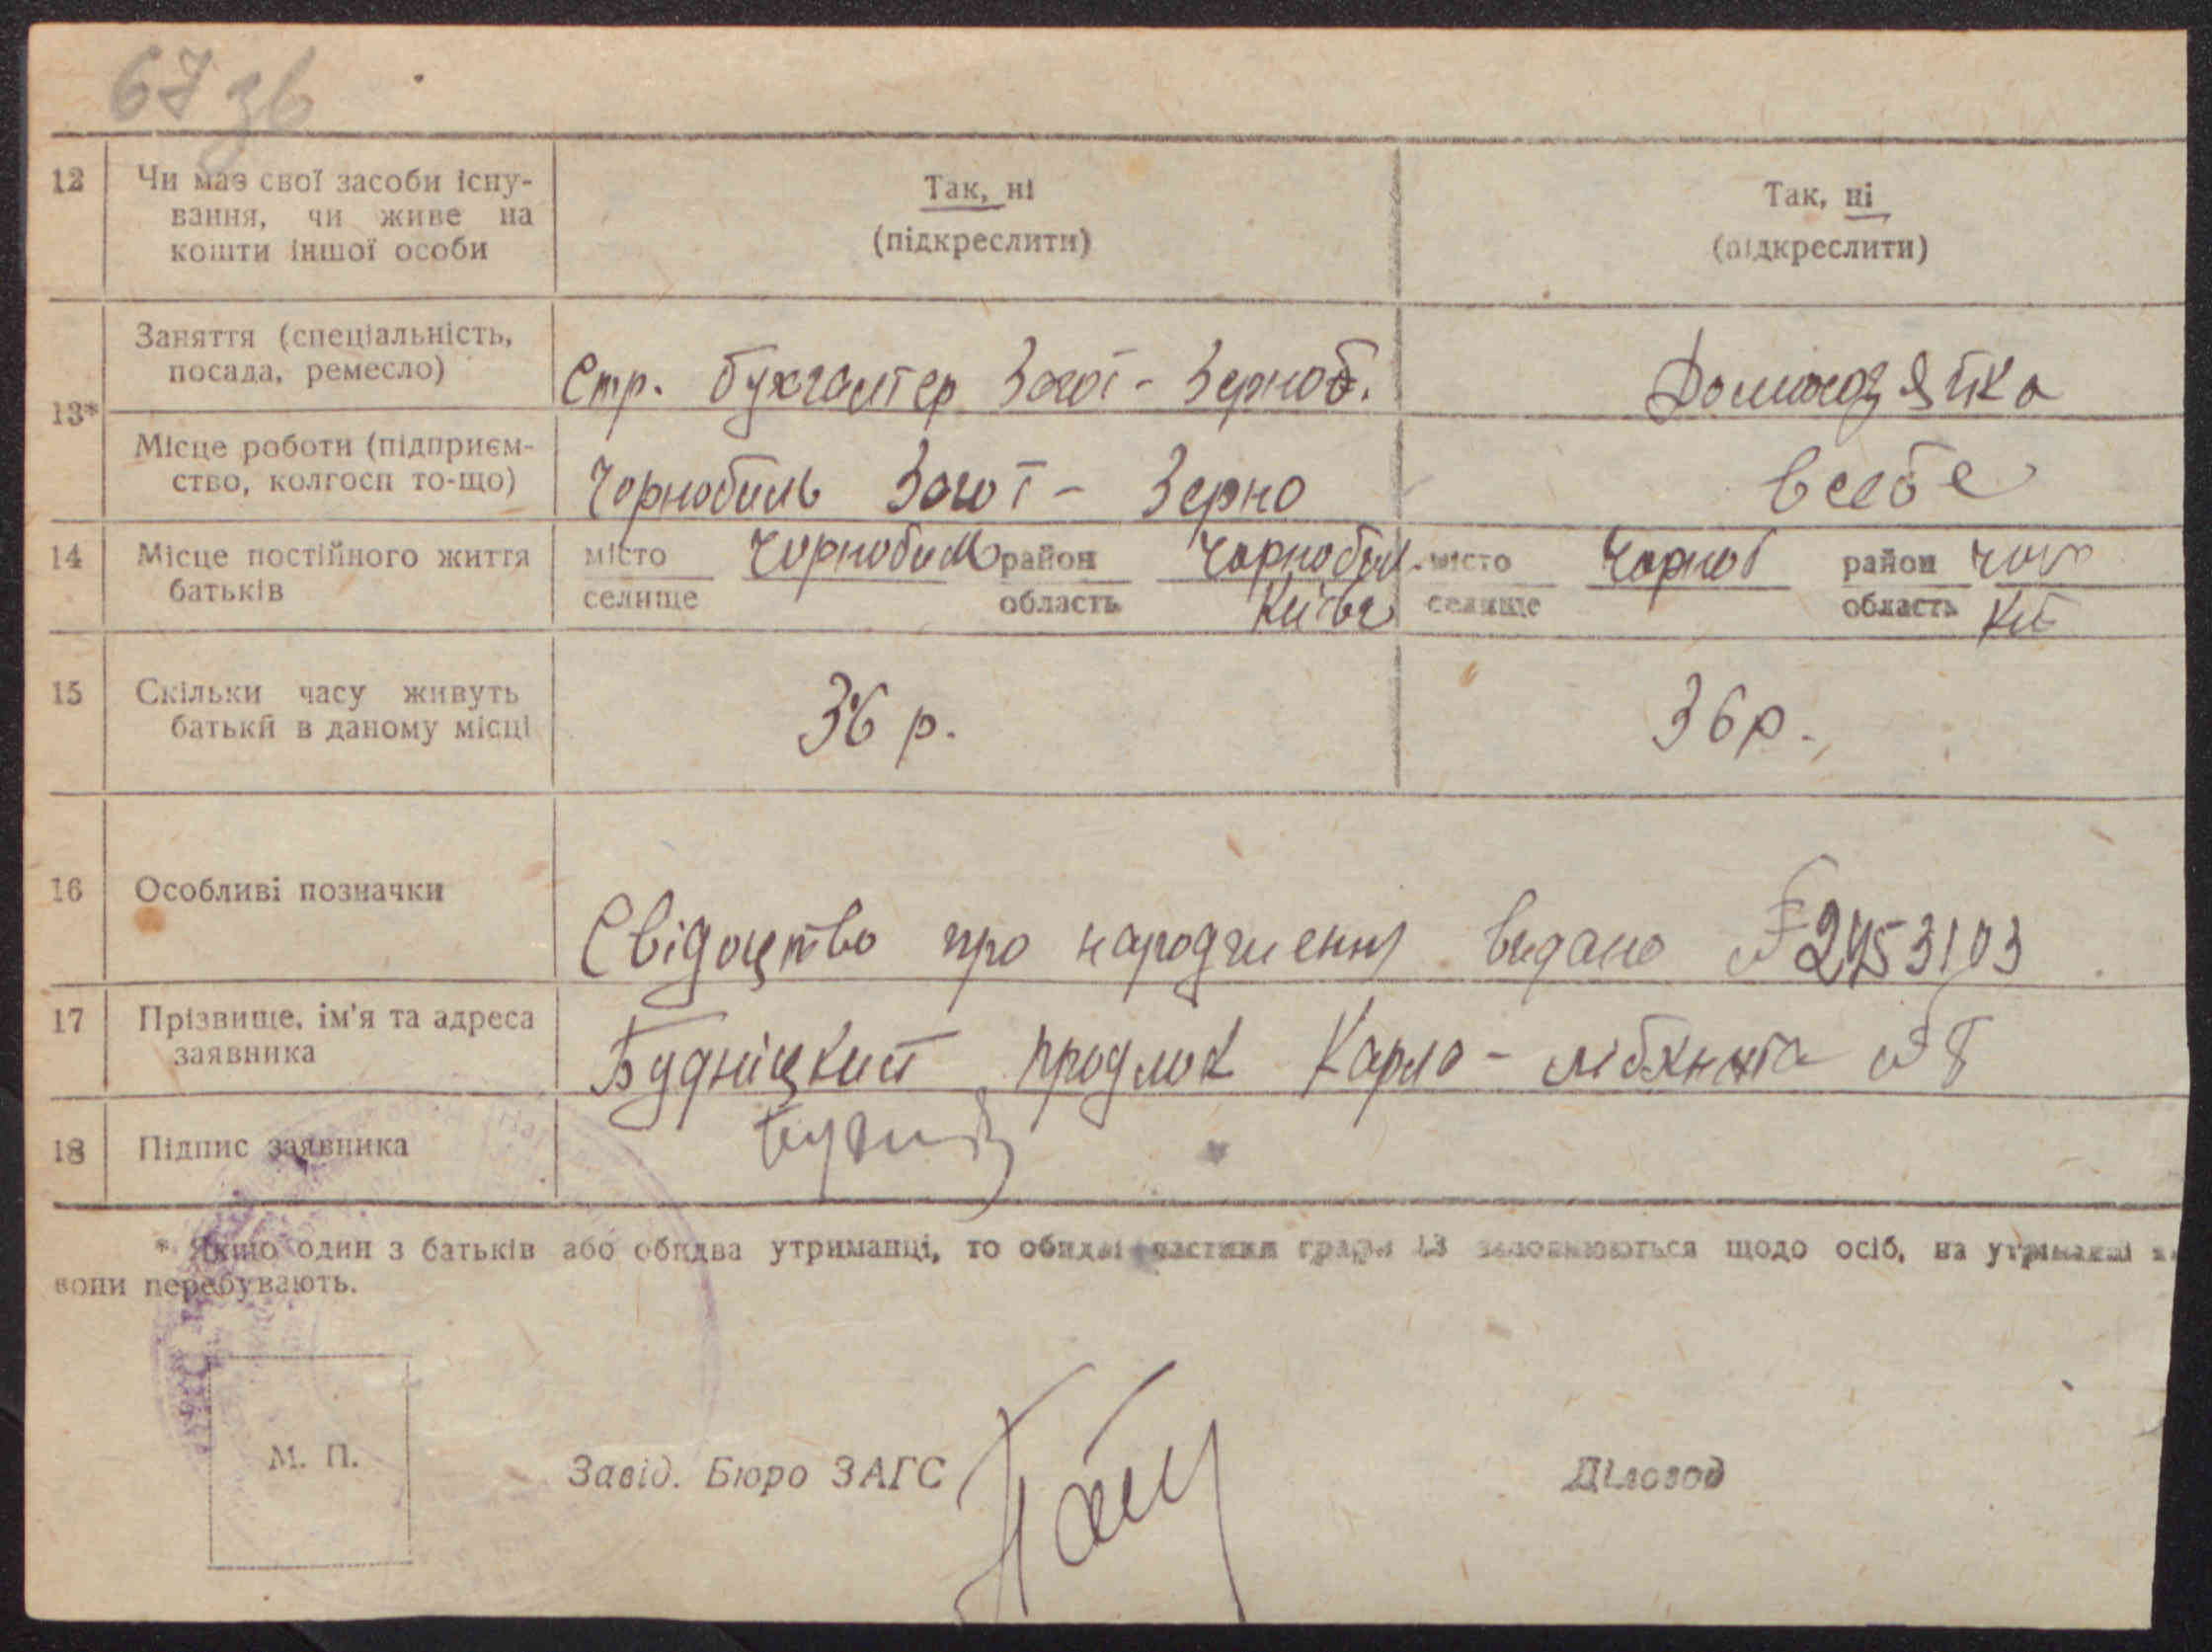 67 зв
12 Чи має свої засоби існу-
вання, чи живе на
кошти іншої особи
Так, ні
(підкреслити)
Так, ні
(підкреслити)
13*
Заняття (спеціальність,
посада, ремесло)
Стр. бухгалтер Загот-Зерноб.
Домогозяйка
Місце роботи (підприєм-
ство, колгосп то-що)
Чорнобиль Загот- Зерно
в себе
14 Місце постійного життя
батьків
місто Чорнобил район Чорнобил.
селище область Київс
місто Чорноб район Чор
селище область Киї
15 Скільки часу живуть
батьки в даному місці
36 р.
36 р.
16 Особливі позначки
Свідоцтво про народження видано № 2453103
17 Прізвище, ім'я та адреса
заявника
Будніцкий Карла-лібкнхта № 8
18 Підпис заявника
* Якщо один з батьків або обидва утриманці, то обидві частини графи 13 заповнюються щодо осіб, на утриманні
вони перебувають.
М. П.
Завід. Бюро ЗАГС
Діловод